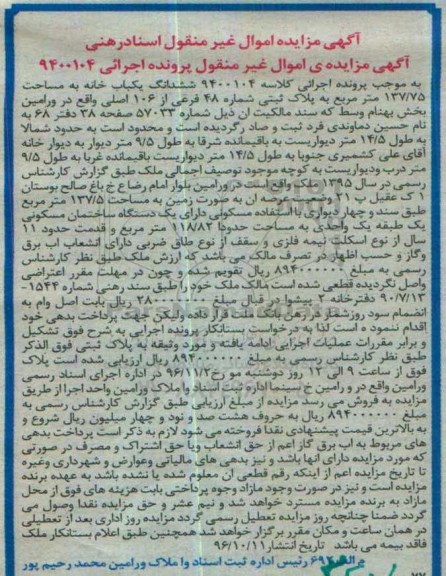 آگهی مزایده اموال غیر منقول اسناد رهنی
آگهی مزایده ی اموال غیر منقول پرونده اجرائی ۹۴۰۰۱۰۴
به موجب پرونده اجرائی کلاسه ۹۴۰۰۱۰۴ ششدانگ یکباب خانه به مساحت
۱۳۷/۷۵ متر مربع به پلاک ثبتی شماره ۴۸ فرعی از ۱۰۶ اصلی واقع در ورامین
بخش بهنام وسط که سند مالکیت آن ذیل شماره ۵۷۰۳۳ صفحه ۳۸ دفتر ۶۸ به
نام حسین دماوندی فرد ثبت و صادر گردیده است و محدود است به حدود شمالا
به طول ۱۴/۵ متر دیواریست به باقیمانده شرقا به طول ۹/۵ متر دیوار به دیوار خانه
آقای علی کشمیری جنوبا به طول ۱۴/۵ متر دیواریست باقیمانده غربا به طول ۹/۵
متر درب و دیواریست به کوچه موجود توصیف اجمالی ملک طبق گزارش کارشناس
رسمی در سال ۱۳۹۵ ملک واقع است در ورامین بلوار امام رضا ع خ باغ صالح بوستان
۱ ک عقیل پ ۱ وضعیت عرصه آن به صورت زمین به مساحت ۱۳۷/۵ متر مربع
طبق سند و چهار دیواری با استفاده مسکونی دارای یک دستگاه ساختمان مسکونی
یک طبقه یک واحدی به مساحت حدودا ۱۱۸/۸۲ متر مربع و قدمت حدود ۱۱
سال از نوع اسکلت نیمه فلزی و سقف از نوع طاق ضربی دارای انشعاب آب برق
وگاز و حسب اظهار در تصرف مالک می باشد که ارزش ملک طبق نظر کارشناس
رسمی به مبلغ ۸۹۴۰۰۰۰۰۰ ریال تقویم شده و چون در مهلت مقرر اعتراضی
واصل نگردیده قطعی شده است مالک ملک خود را طبق سند رهنی شماره ۱۵۴۴-
۹۰/۷/۱۳ دفترخانه ۲ پیشوا در قبال مبلغ ۲۸۰۰۰۰۰۰۰ ریال بابت اصل وام به
انضمام سود روزشمار در رهن بانک ملت قرار داده ولیکن جهت پرداخت بدهی خود
اقدام ننموده است لذا به درخواست بستانکار پرونده اجرایی به شرح فوق تشکیل
و برابر مقررات عملیات اجرایی ادامه یافته و مورد وثیقه به پلاک ثبتی فوق الذکر
طبق نظر کارشناس رسمی به مبلغ ۸۹۴۰۰۰۰۰۰ ریال ارزیابی شده است پلاک
فوق از ساعت ۹ الی ۱۲ روز دوشنبه مورخ ۹۶/۱۱/۲ در اداره اجرای اسناد رسمی
ورامین واقع در ورامین خ سینما اداره ثبت اسناد و املاک ورامین واحد اجرا از طریق
مزایده به فروش می رسد مزایده از مبلغ ارزیابی طبق گزارش کارشناس رسمی به
مبلغ ۸۹۴۰۰۰۰۰۰ ریال به حروف هشت صد و نود و چهار میلیون ریال شروع و
به بالاترین قیمت پیشنهادی نقدا فروخته می شود لازم به ذکر است پرداخت بدهی
های مربوط به آب برق گاز اعم از حق انشعاب و یا حق اشتراک و مصرف در صورتی
که مورد مزایده دارای آنها باشد و نیز بدهی های مالیاتی وعوارض و شهرداری وغیره
تا تاریخ مزایده اعم از اینکه رقم قطعی آن معلوم شده یا نشده باشد به عهده برنده
مزایده است و نیز در صورت وجود مازاد وجوه پرداختی بابت هزینه های فوق از محل
مازاد به برنده مزایده مسترد خواهد شد و نیم عشر و حق مزایده نقدا وصول می
گردد ضمنا چنانچه روز مزایده تعطیل رسمی گردد مزایده روز اداری بعد از تعطیلی
در همان ساعت و مکان مقرر برگزار خواهد شد همچنین طبق اعلام بستانکار ملک
فاقد بیمه می باشد تاریخ انتشار ۹۶/۱۰/۱۱
رئیس اداره ثبت اسناد و املاک ورامین محمد رحیم پور